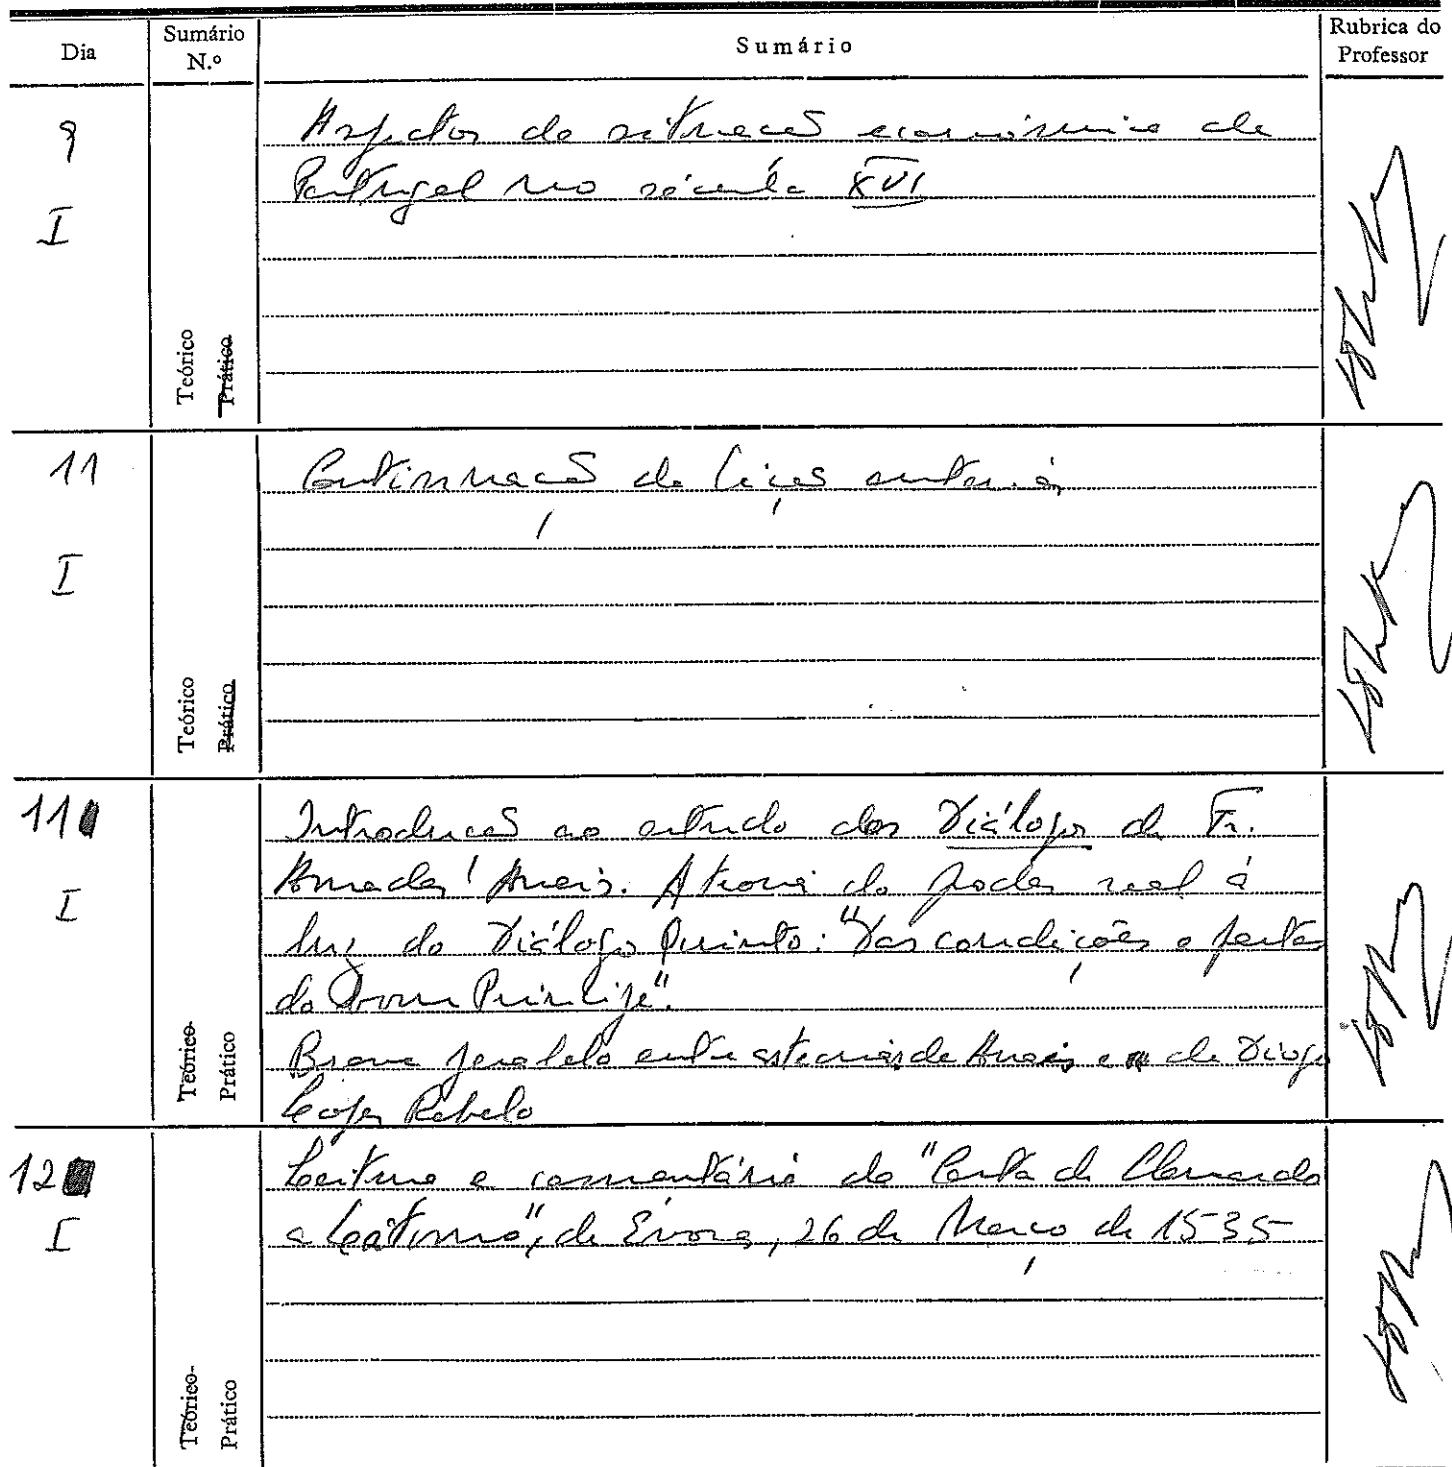 Dia
Sumário
N.º
Sumário
Rubrica do
Professor
9
I
Aspectos da situação económica de
Portugal no século XVI
Teórico
Prático
11
I
Continuação da lição anterior
Teórico
Prático
11
I
Introdução ao estudo dos Diálogos de Fr.
Amador Arrais. A teoria do poder real à
luz do Diálogo Quinto: "Das condições e partes
do bom Príncipe".
Breve paralelo entre as teorias de Arrais e a de Diogo
Lopes Rebelo
Teórico
Prático
12
I
Leitura e comentário da "Carta de Clenardo
a Látomo", de Évora, 26 de Março de 1535
Teórico
Prático